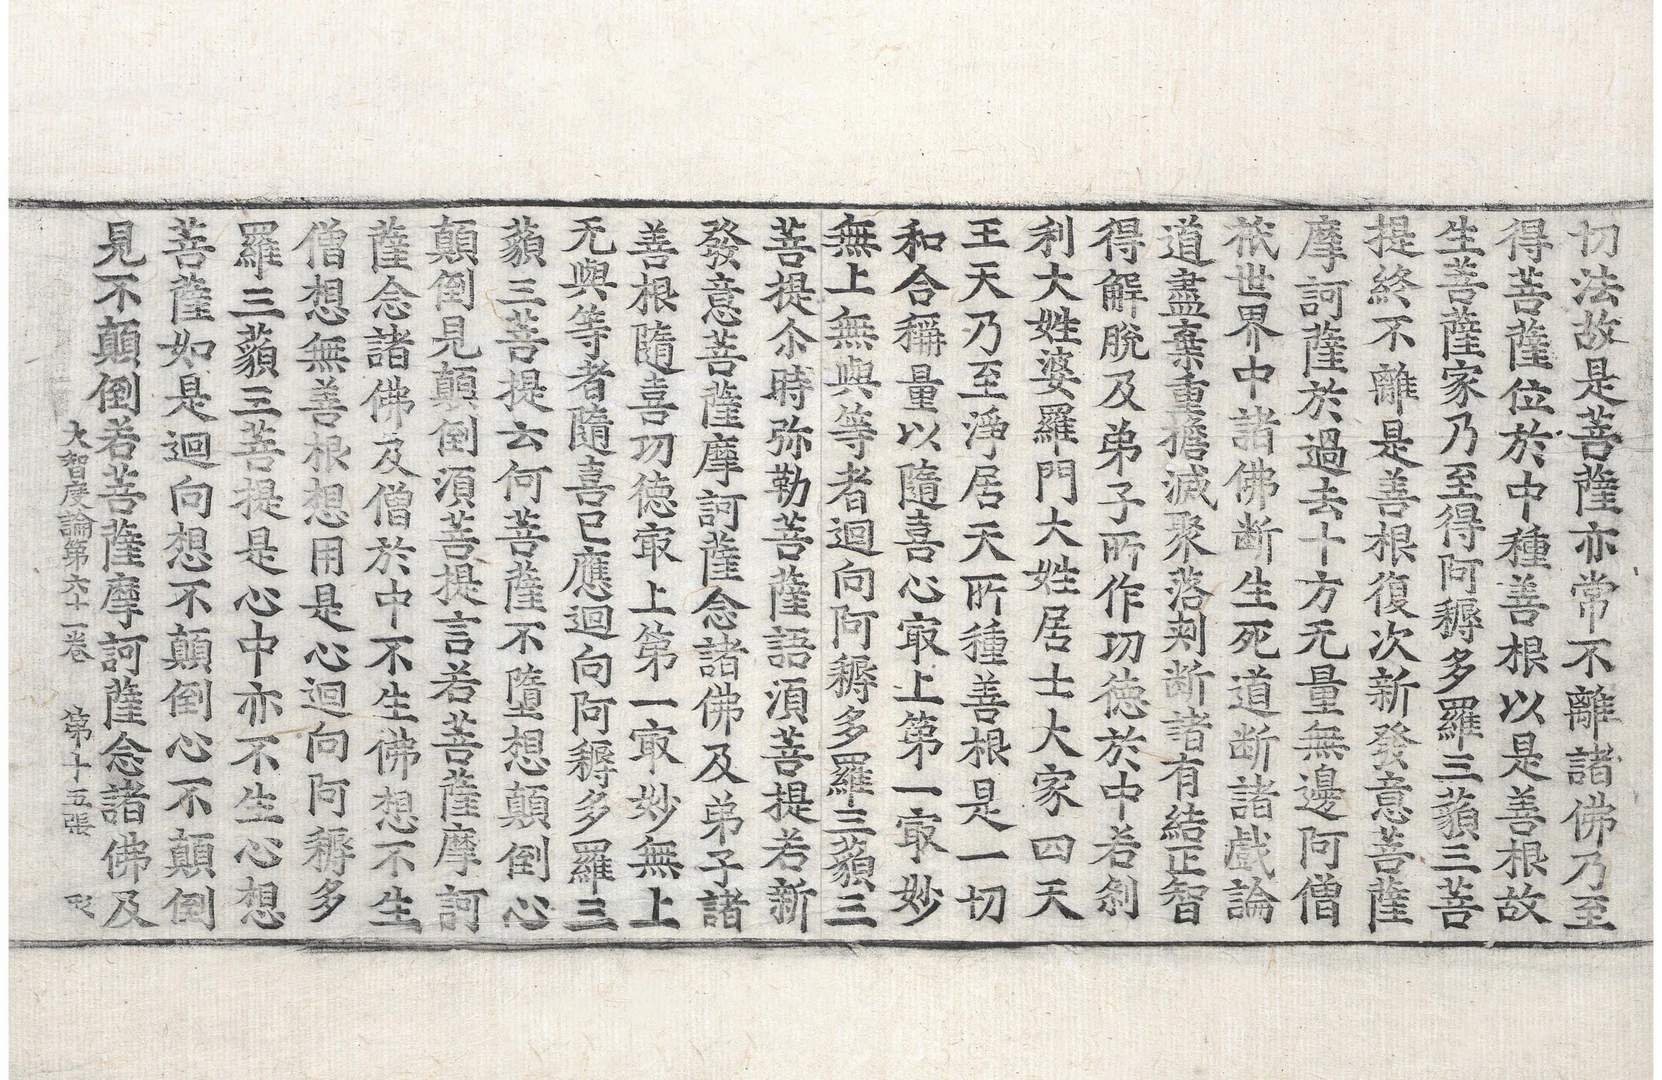 切法故是菩薩亦常不離諸佛乃至
得菩薩位於中種善根以是善根故
生菩薩家乃至得阿耨多羅三藐三菩
提終不離是善根復次新發意菩薩
摩訶薩於過去十方无量無邊阿僧
祇世界中諸佛断生死道断諸戲論
道盡棄重擔滅聚落刺断諸有結正智
得解脫及弟子所作功德於中若剎
利大姓婆羅門大姓居士大家四天
王天乃至淨居天所種善根是一切
和合稱量以隨喜心㝡上第一㝡妙
無上無與等者迴向阿耨多羅三藐三
菩提尒時弥勒菩薩語須菩提若新
發意菩薩摩訶薩念諸佛及弟子諸
善根隨喜功德㝡上第一㝡妙無上
无與等者隨喜已應迴向阿耨多羅三
藐三菩提云何菩薩不墮想顛倒心
顛倒見顛倒須菩提言若菩薩摩訶
薩念諸佛及僧於中不生佛想不生
僧想無善根想用是心迴向阿耨多
羅三藐三菩提是心中亦不生心想
菩薩如是迴向想不顛倒心不顛倒
見不顛倒若菩薩摩訶薩念諸佛及
大智度論第六十一卷 第十五張